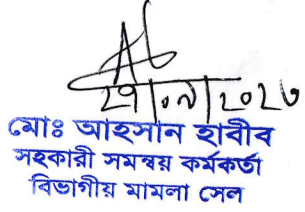 মোঃ আহসান হাবীব
সহকারী সমন্বয় কর্মকর্তা
বিভাগীয় মামলা সেল